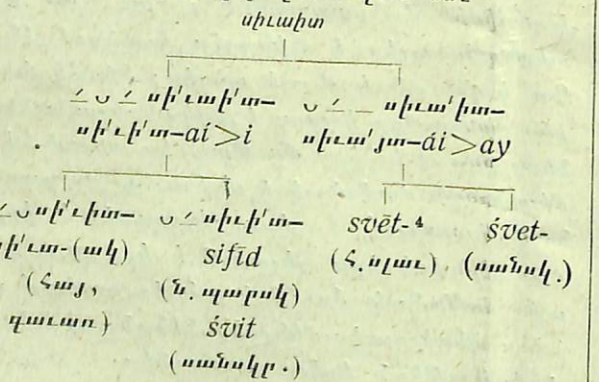 սիւաիտ
– ́ ∪ – ́ սի՛ւաի՛տ– ∪ – ́ – սիւա՛իտ–
սի՛ւի՛տ–aí>i սիւա՛յտ–ái>ay
∪ սի՛ւիտ– ∪ – ́ սիւի՛տ– svēt-⁴ śvet-
ի՛ւտ-(ակ) sifīd (Հ. սլաւ) (սանսկ.)
(Հայ, (ն. պարսկ)
գաւառ) śvit
(սանսկր.)